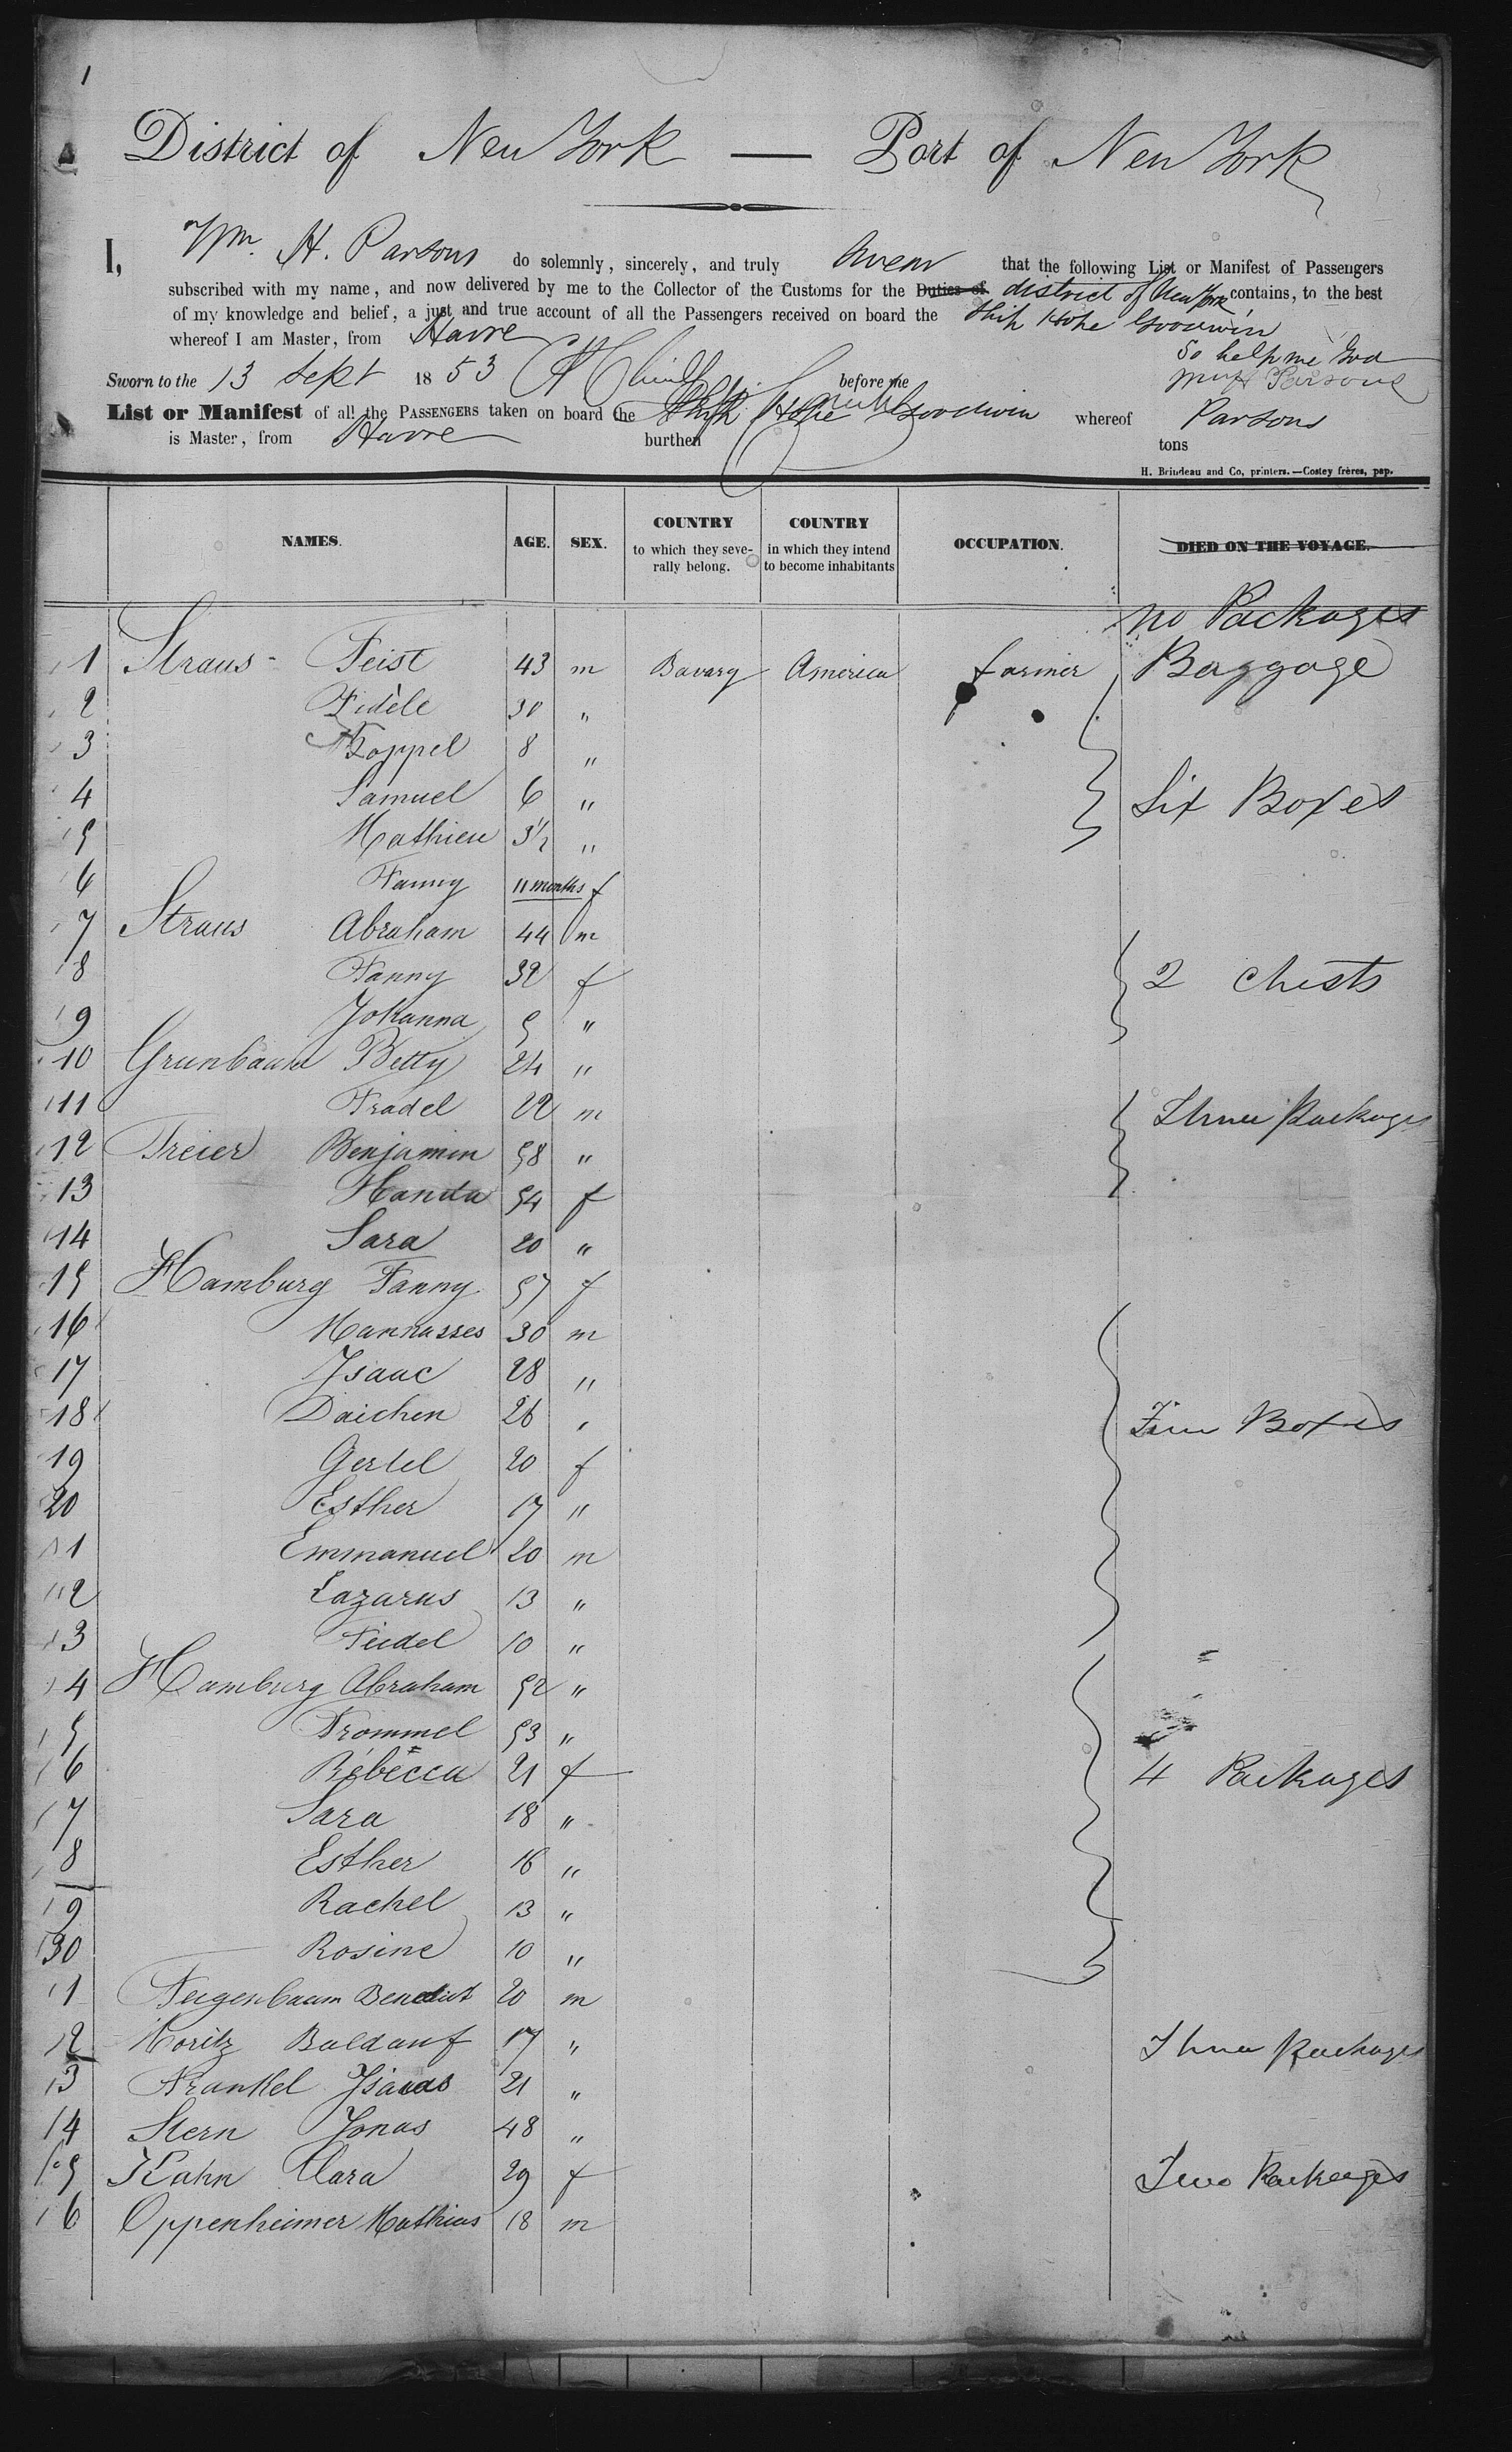 1
District of New York — Port of New York
I, Wm. H. Parsons do solemnly, sincerely, and truly Swear that the following List or Manifest of Passengers
subscribed with my name, and now delivered by me to the Collector of the Customs for the Duties of district of New York contains, to the best
of my knowledge and belief, a just and true account of all the Passengers received on board the Ship Hope Goodwin
whereof I am Master, from Havre
So help me God
Sworn to the 13 Sept 1853 before me Wm H Parsons
List or Manifest of all the PASSENGERS taken on board the Ship Hope Goodwin whereof Parsons
is Master, from Havre burthen tons
H. Brindeau and Co, printers.—Costey frères, pap.
NAMES. AGE. SEX. COUNTRY to which they severally belong. COUNTRY in which they intend to become inhabitants OCCUPATION. DIED ON THE VOYAGE.
no Packages
1 Straus - Feist 43 m Bavary America farmer Baggage
2 Fidèle 30 "
3 Koppel 8 "
4 Samuel 6 " Six Boxes
5 Mathieu 3½ "
6 Fanny 11 months f
7 Straus Abraham 44 m
8 Fanny 32 f 2 Chests
9 Johanna 5 "
10 Grunbaum Betty 24 "
11 Fradel 22 m Three Packages
12 Freier Benjamin 58 "
13 Handa 54 f
14 Sara 20 "
15 Hamburg Fanny 57 f
16 Mannasses 30 m
17 Isaac 28 "
18 Daichen 26 " Boxes
19 Gertel 20 f
20 Esther 17 "
1 Emmanuel 20 m
2 Lazarus 13 "
3 Feidel 10 "
4 Hamburg Abraham 52 "
5 Frommel 53 "
6 Rébecca 21 f 4 Packages
7 Sara 18 "
8 Esther 16 "
9 Rachel 13 "
30 Rosine 10 "
1 Feigenbaum Benedict 20 m
2 Moritz Baldauf 17 " Three Packages
3 Frankel Isaias 21 "
4 Stern Jonas 48 "
5 Kahn Clara 29 f Two Packages
6 Oppenheimer Mathias 18 m